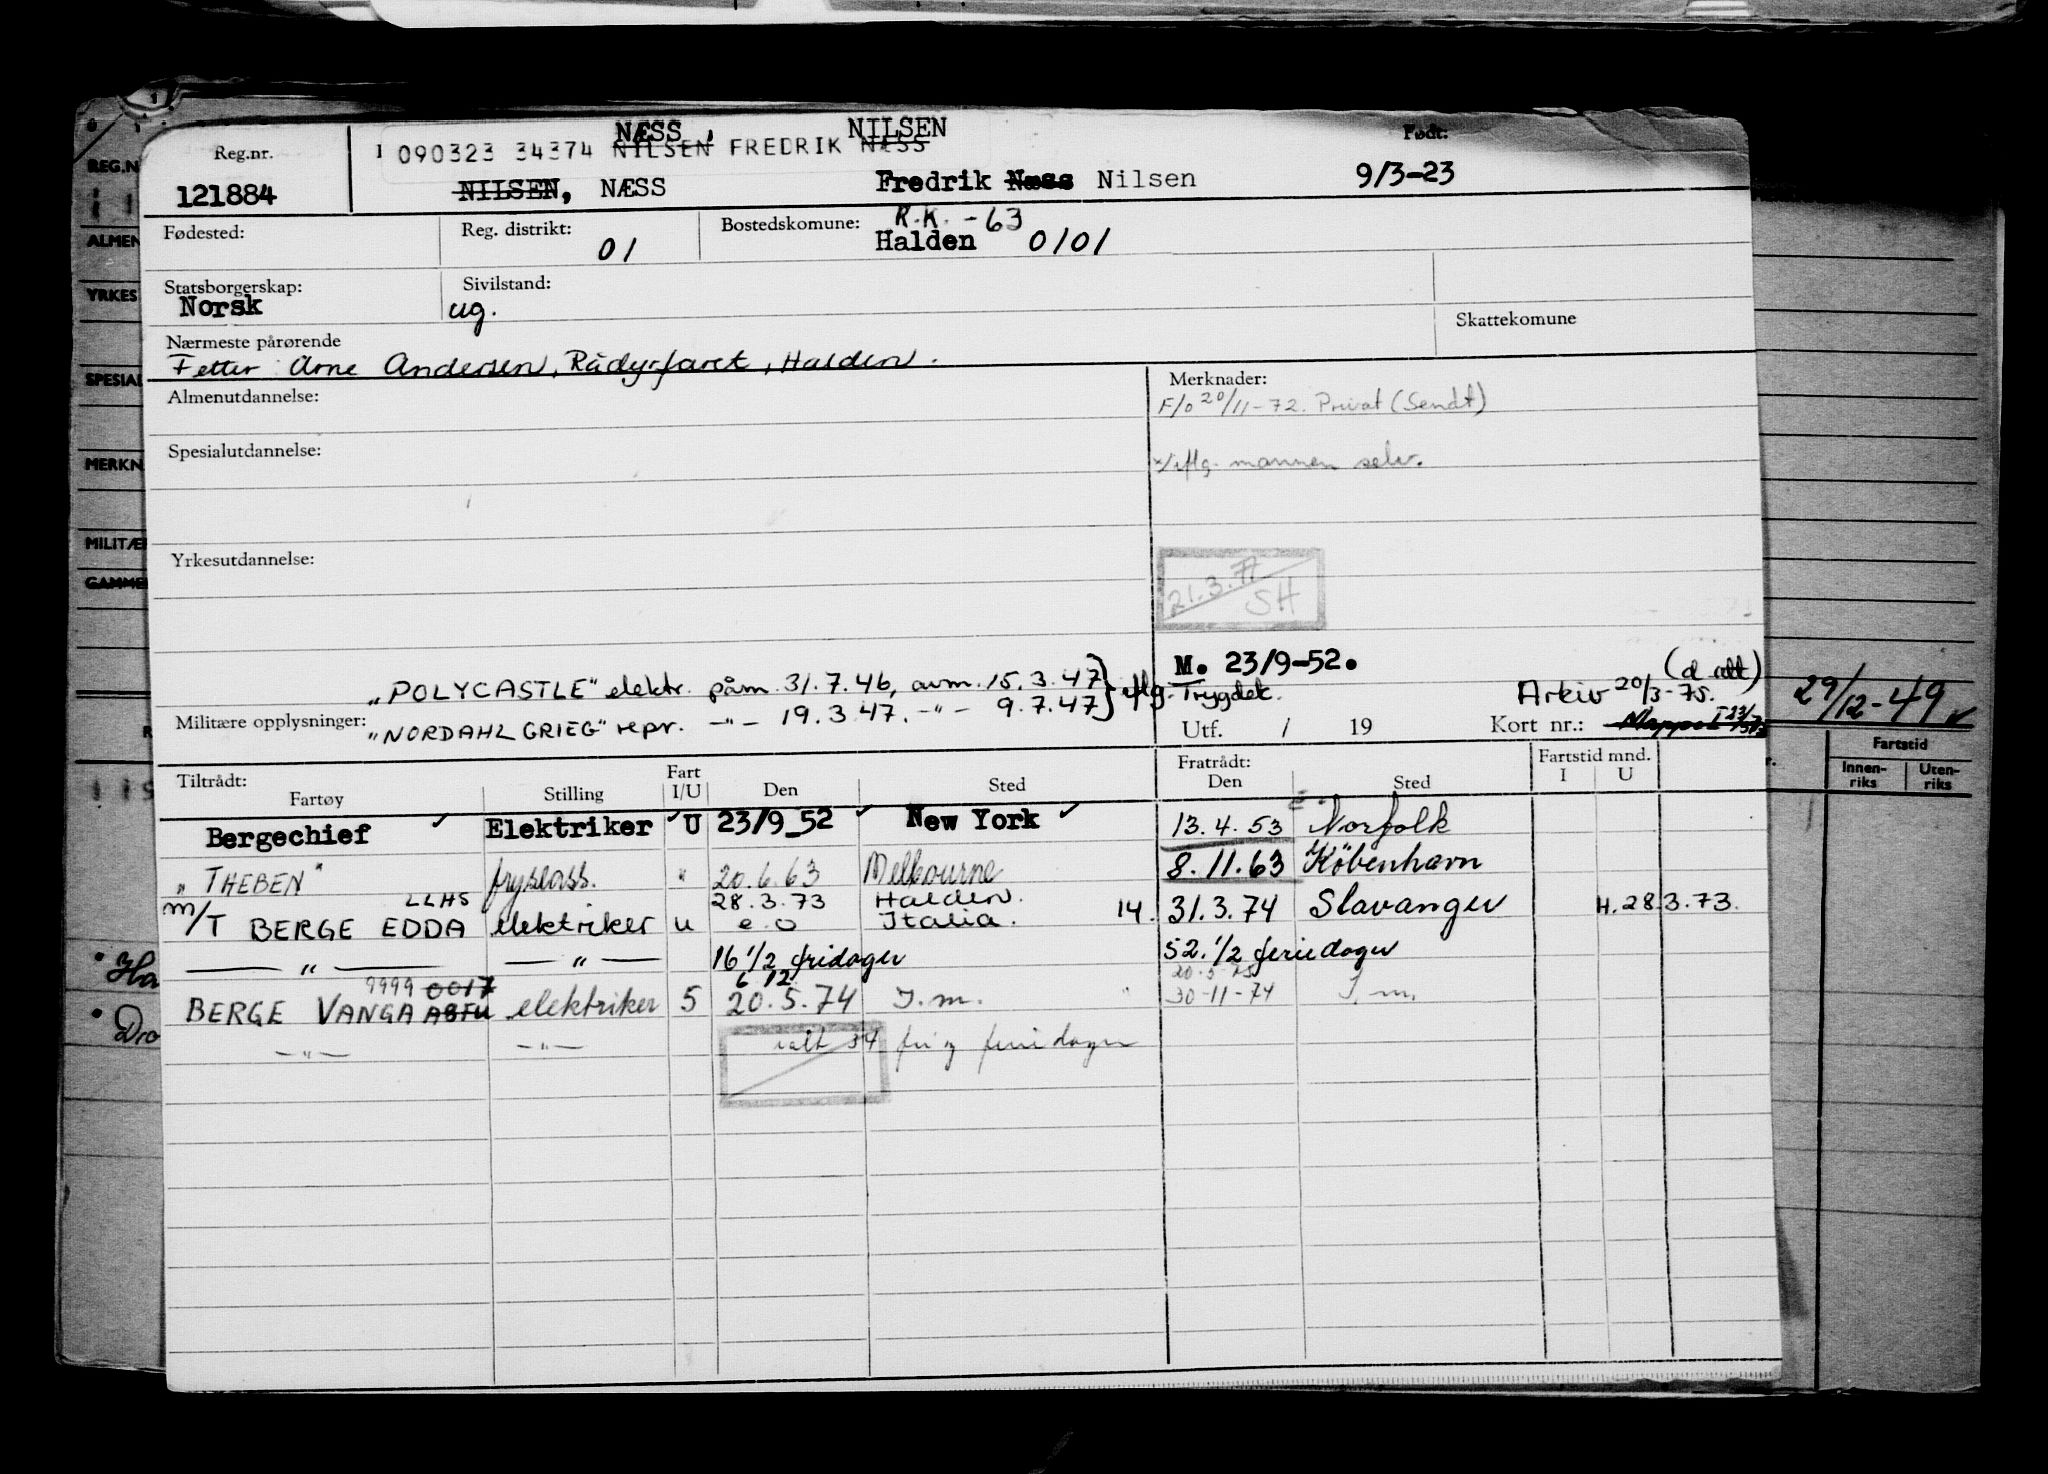 NÆSS, NILSEN Født:
Reg.nr. 090323 34374 NILSEN FREDRIK NÆSS
121884 NILSEN, NÆSS Fredrik Næss Nilsen 9/3-23
R.K. -63
Fødested: Reg. distrikt: 01 Bostedskomune: Halden 0101
Statsborgerskap: Sivilstand:
Norsk ug.
Nærmeste pårørende Skattekomune
Fetter: Arne Andersen, Rådyrfaret, Halden.
Almenutdannelse: Merknader:
F/o 20/11-72. Privat (Sendt)
Spesialutdannelse:
iflg. mannen selv.
Yrkesutdannelse:
21.3.77
SH
M. 23/9-52.
(d. alt)
„POLYCASTLE" elektr. påm. 31.7.46, avm. 15.3.47 } iflg. Trygdek. Arkiv 20/3-75. 29/12-49
Militære opplysninger: „NORDAHL GRIEG" repr. -"- 19.3.47. -"- 9.7.47 Utf. / 19 Kort nr.: Mappe I
Tiltrådt: Fart Fratrådt: Fartstid mnd. Fartstid
Fartøy Stilling I/U Den Sted Den Sted I U Innen-riks Uten-riks
Bergechief Elektriker U 23/9_52 New York 13.4.53 Norfolk
„THEBEN" fryseass. " 20.6.63 Melbourne 8.11.63 København
LLHS 28.3.73 Halden.
M/T BERGE EDDA elektriker u e.o Italia. 14. 31.3.74 Stavanger H.28.3.73.
— " — — " — 16 1/2 fridager 52.1/2 feriedager
9999 0017 6 12 20.5.75
BERGE VANGA ABFU elektriker 5 20.5.74 J.m. 30-11-74 J.m.
-"- -"- ialt 34 fri og feriedager
REG.N
ALMEN
YRKES
SPESIAL
MERKN
MILITÆ
GAMME
Ha
Dro